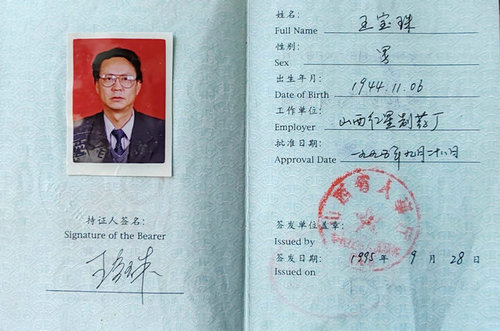 持证人签名:
Signature of the Bearer
王宝珠
姓名:
Full Name 王宝珠
性别:
Sex 男
出生年月:
Date of Birth 1944.11.06
工作单位:
Employer 山西红星制药厂
批准日期:
Approval Date 一九九五年九月二十八日
签发单位盖章:
Issued by
签发日期: 1995年 9 月 28 日
Issued on